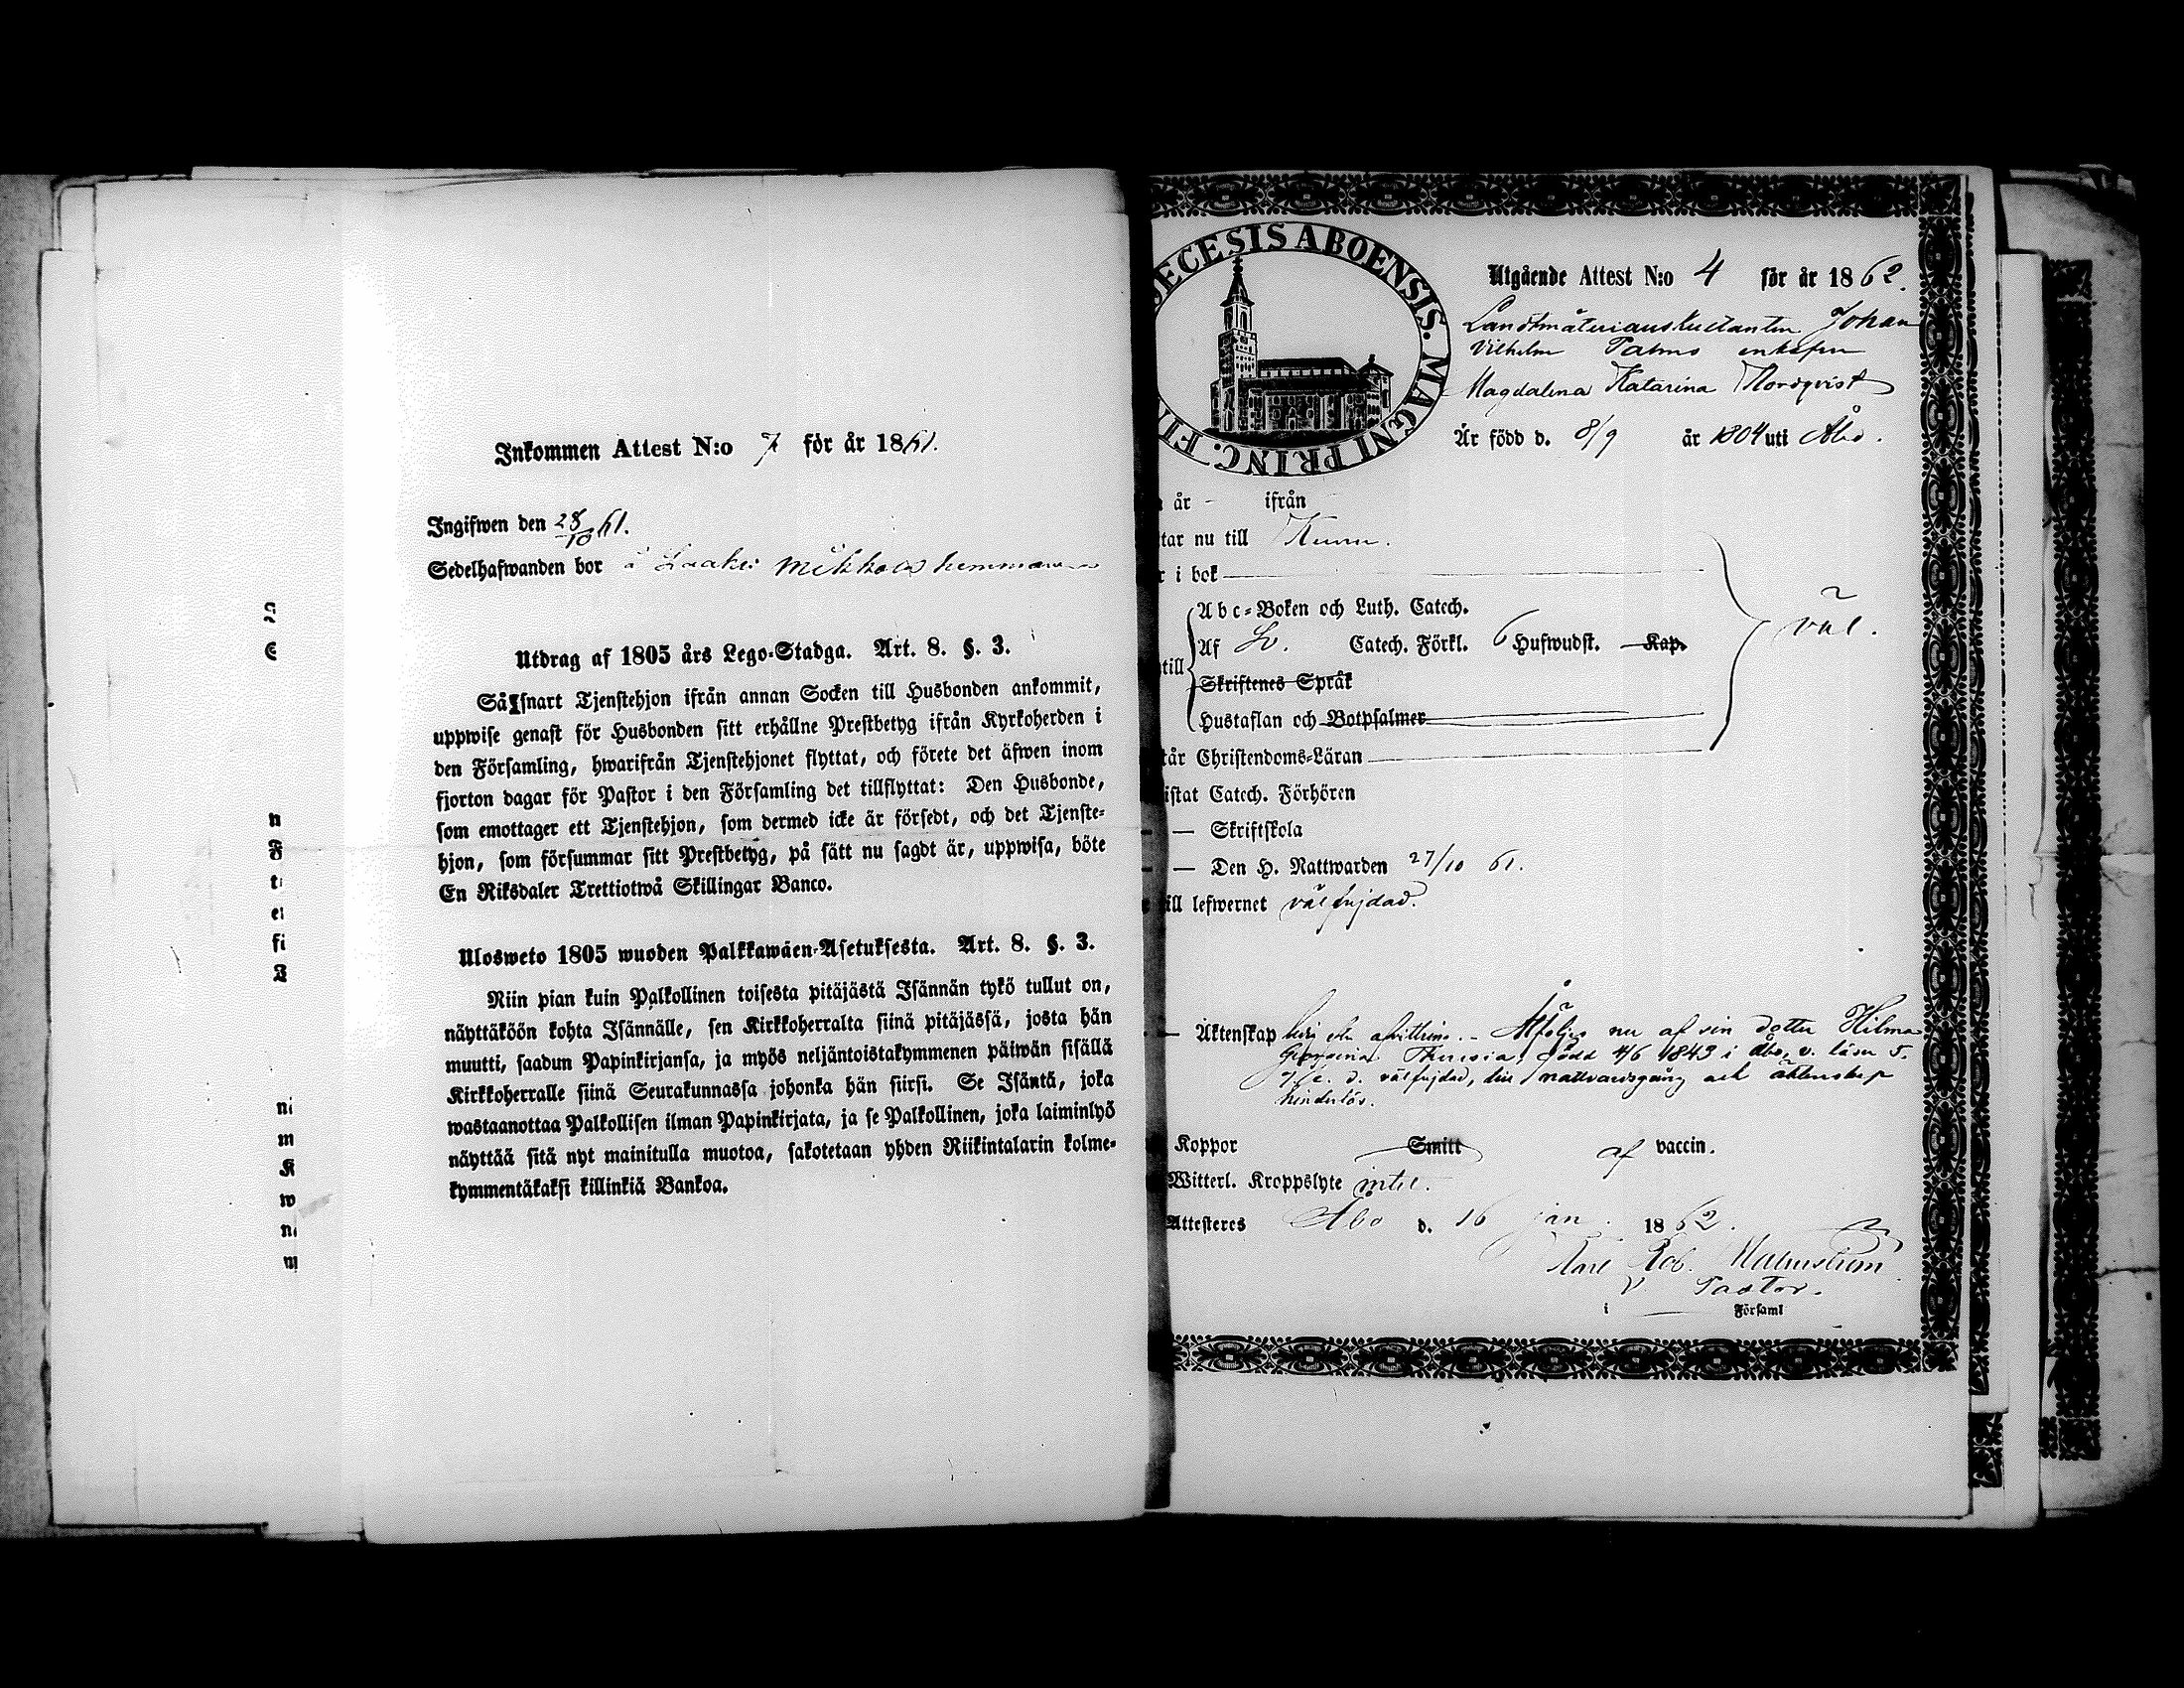 Inkommen Attest N:o 7 för år 1861.
Ingifwen den 28/10 61.
Sedelhafwanden bor å Laakis Mikkola hemman
Utdrag af 1805 års Lego-Stadga. Art. 8. §. 3.
Så snart Tjenstehjon ifrån annan Socken till Husbonden ankommit,
uppwise genast för Husbonden sitt erhållne Prestbetyg ifrån Kyrkoherden i
den Församling, hwarifrån Tjenstehjonet flyttat, och förete det äfwen inom
fjorton dagar för Pastor i den Församling det tillflyttat: Den Husbonde,
som emottager ett Tjenstehjon, som dermed icke är försedt, och det Tjenste-
hjon, som försummar sitt Prestbetyg, på sätt nu sagdt är, uppwisa, böte
En Riksdaler Trettiotwå Skillingar Banco.
Ulosweto 1805 wuoden Palkkawäen-Asetuksesta. Art. 8. §. 3.
Niin pian kuin Palkollinen toisesta pitäjästä Isännän tykö tullut on,
näyttäköön kohta Isännälle, sen Kirkkoherralta siinä pitäjässä, josta hän
muutti, saadun Papinkirjansa, ja myös neljäntoistakymmenen päiwän sisällä
Kirkkoherralle siinä Seurakunnassa johonka hän siirsi. Se Isäntä, joka
wastaanottaa Palkollisen ilman Papinkirjata, ja se Palkollinen, joka laiminlyö
näyttää sitä nyt mainitulla muotoa, sakotetaan yhden Riikintalarin kolme-
kymmentäkaksi killinkiä Bankoa.
ECESIS ABOENSIS. MAGNI PRINC. FI
Utgående Attest N:o 4 för år 1862.
Landtmäteriauskultanten Johan
Vilhelm Palmros enkefru
Magdalena Katarina Nordqvist
Är född d. 8/9 år 1804 uti Åbo.
år - ifrån
tar nu till Kumo.
r i bok
Abc-Boken och Luth. Catech.
Af Sv. Catech. Förkl. 6 Hufwudst. Kap.
till
Skriftenes Språk
Hustaflan och Botpsalmer
väl.
tår Christendoms-Läran
istat Catech. Förhören
— Skriftskola
— Den H. Nattwarden 27/10 61.
ill lefwernet välfrejdad.
— Äktenskap Åtföljes nu af sin dotter Hilma
Georgina Theresia, född 4/6 1843 i Åbo, v. läser S.
välfrejdad, nattvardsgång och äktenskap
hinderlös.
Koppor Smitt af vaccin.
Witterl. Kroppslyte intet.
Attesteres Åbo d. 16 jan. 1862.
Karl Rob. Malmström
V. Pastor.
i Församl